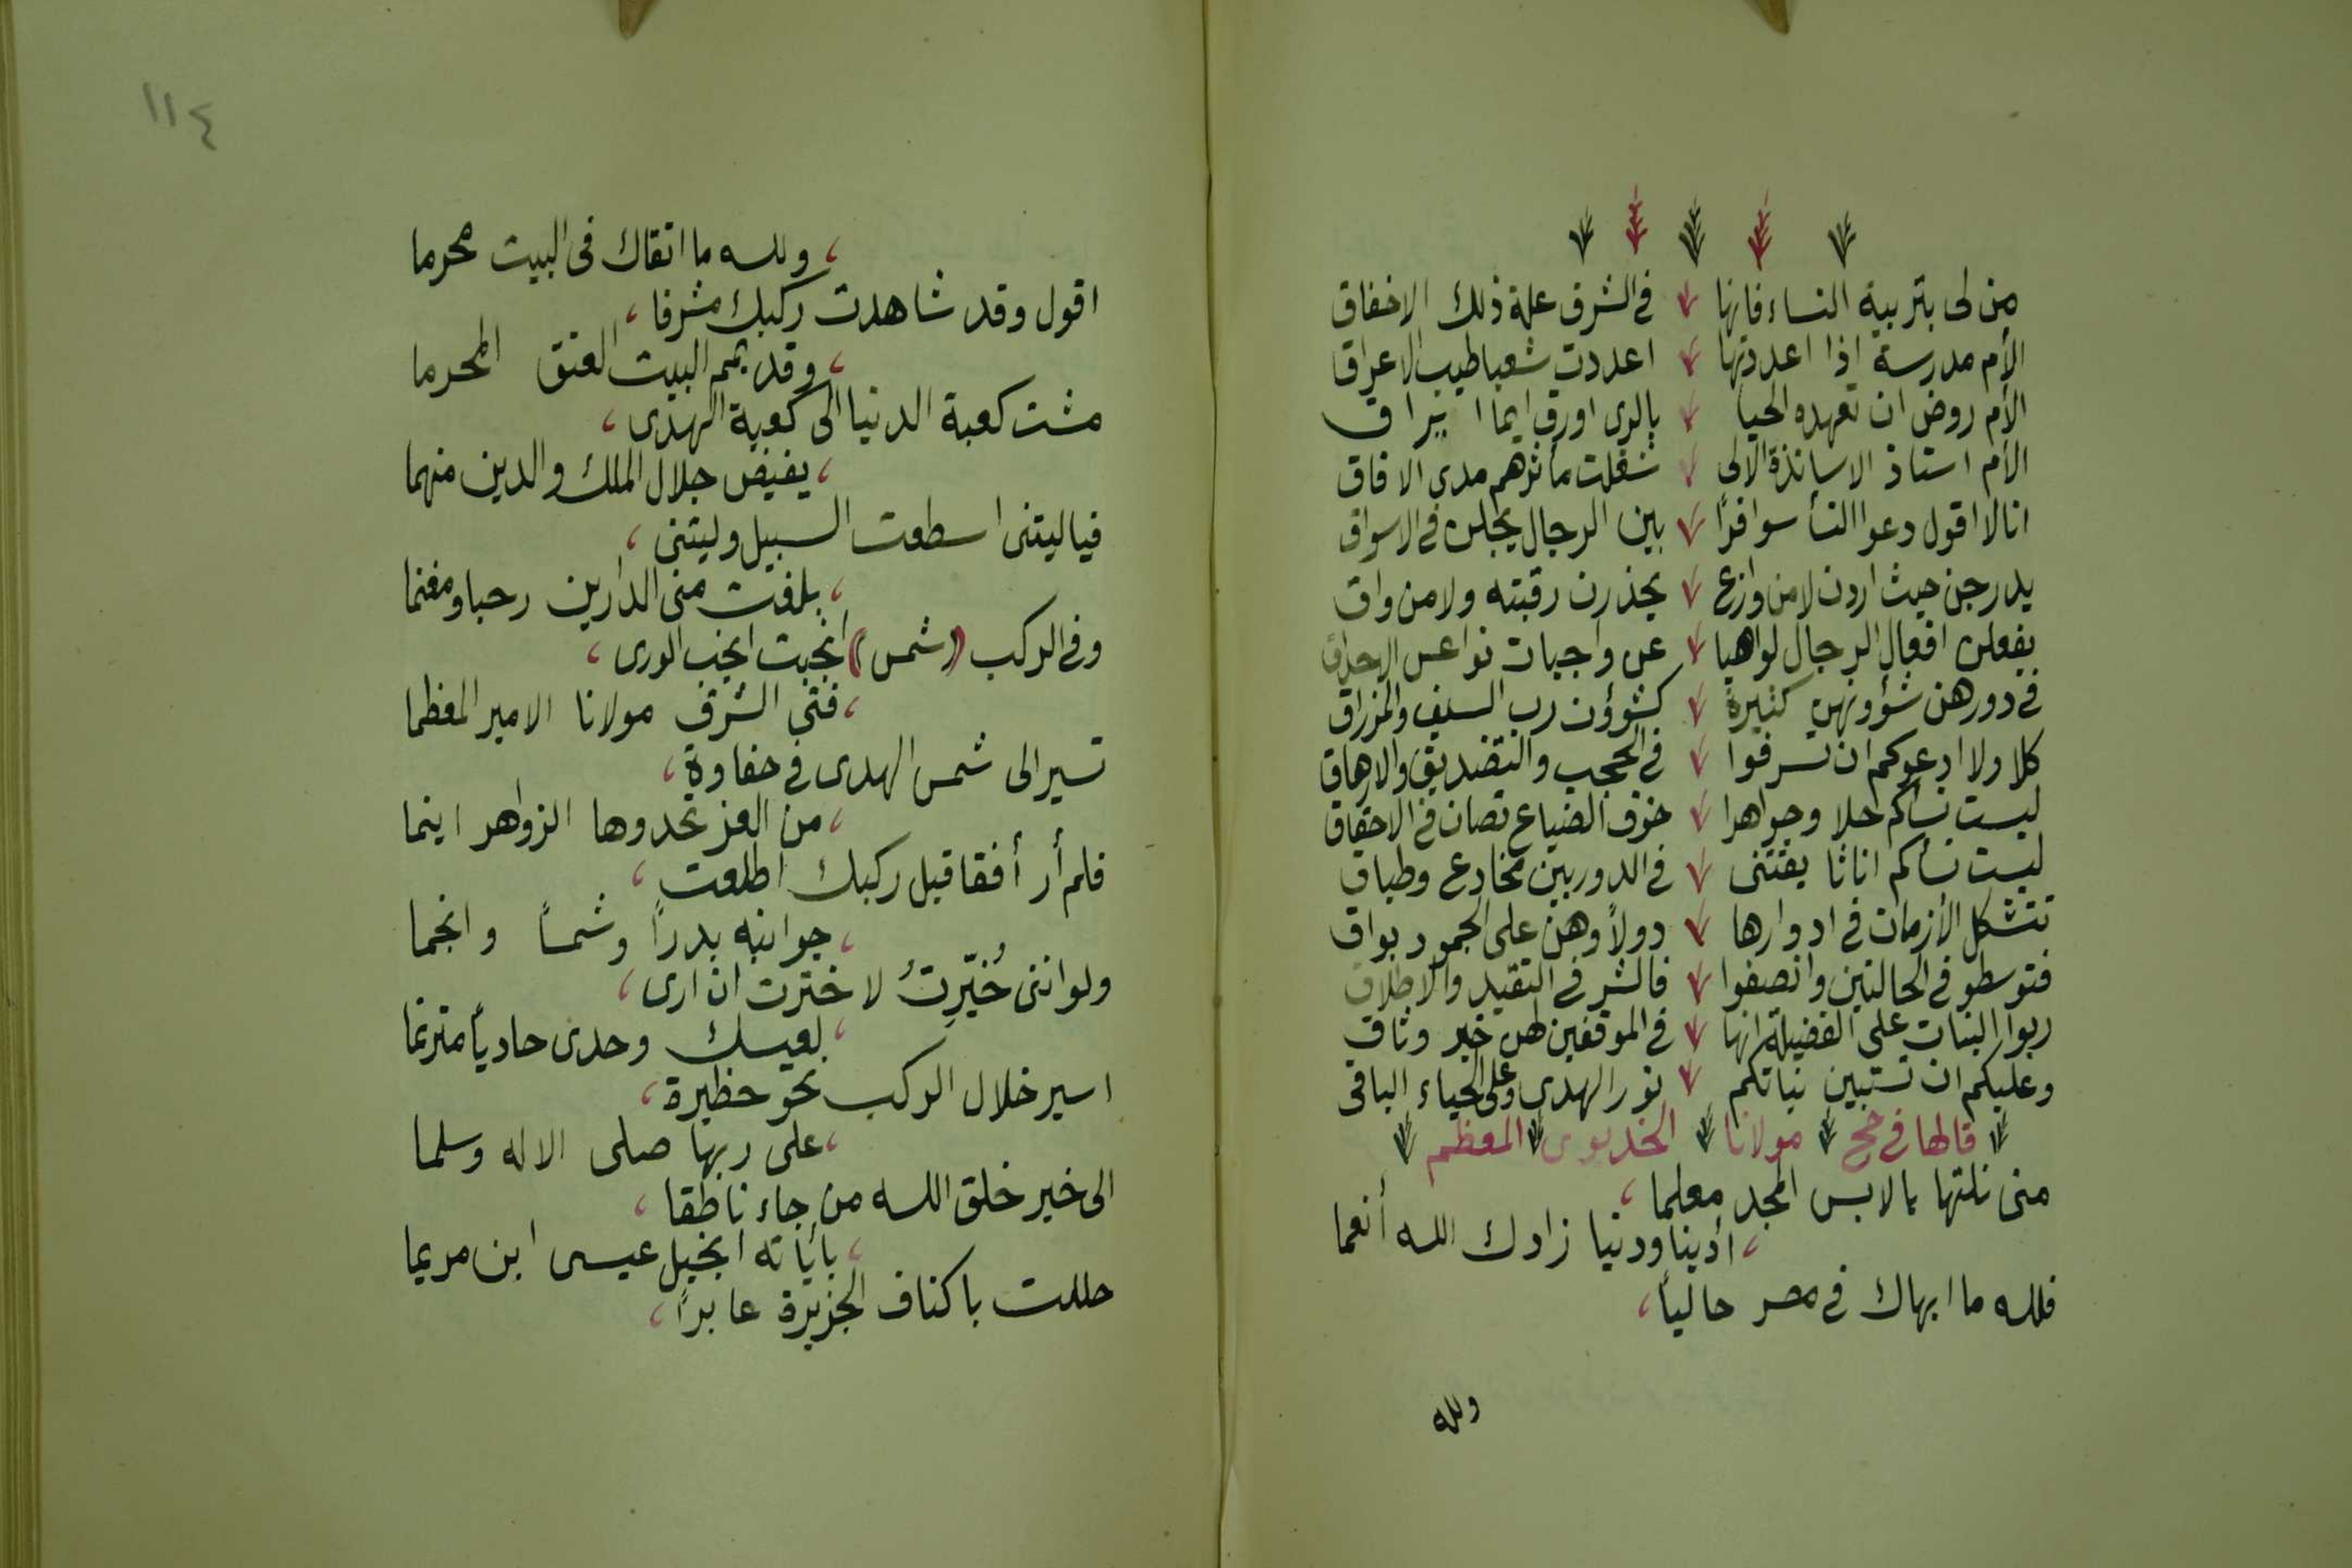 من لى بتربية النساء فانها في الشرق علة ذلك الاخفاق
الأم مدرسة اذا اعددتها اعددت شعبا طيب الاعراق
الأم روض ان تعهده الحيا بالرى اورق ايما ايراق
الأم استاذ الاساتذة الالى شغلت مأثرهم مدى الافاق
انا لا اقول دعوا النسأ سوافرًا بين الرجال يجلن في الاسواق
يدرجن حيث اردن لا من وازع يحذرن رقبته ولا من واق
يفعلن افعال الرجال لواهيا عن واجبات نواعس الاحداق
في دورهن شؤونهن كثيرة كشؤون رب السيف والمزراق
كلا ولا ادعوكم ان تسرفوا في الحجب والتضديق والارهاق
ليست نساكم حلا وجواهرا خوف الضياع تصان في الاحقاق
ليست نسأكم اثاثا يقتنى في الدور بين مخادع وطباق
تتشكل الأزمان في ادوارها دولًا وهن على الجمود بواق
فتوسطو في الحالتين وانصفوا فالشر في التقيد والاطلاق
ربوا البنات على الفضيلة انها في الموقفين لهن خير وثاق
وعليكم ان تستبين نباتكم نور الهدى وعلى الحياء الباقى
قالها في حج مولانا الخديوى المعظم
منى نلتها يا لابس المجد معلما،
، أدينا ودنيا زادك الله أنعما
فلله ما ابهاك في مصر حاليًا،
ولله
١١٤
، ولله ما اتقاك فى البيت محرما
اقول وقد شاهدت ركبك مشرفا،
، وقد يمم البيت العتق المحرما
مشت كعبة الدنيا الى كعبة الهدى،
، يفيض جلال الملك والدين منهما
فياليتنى اسطعت السبيل وليتنى،
، بلغت منى الدارين رحبا ومغنما
وفي الركب ((شمس)) انجبت انجب الورى،
، فتى الشرق مولانا الامير المعظما
تسير الى شمس الهدى في حفاوة،
، من العز تحدوها الزواهر اينما
فلم أر أفقا قبل ركبك اطلعت،
، جوانبه بدرًا وشمسًا وانجما
ولو اننى خُيّرِتُ لاخترت ان ارى،
، لعيسك وحدى حاديًا مترنما
اسير خلال الركب نحو حظيرة،
، على ربها صلى الاله وسلما
الى خير خلق الله من جاء ناطقا،
، بأياته انجيل عيسى ابن مريما
حللت باكناف الجزيرة عابرًا،